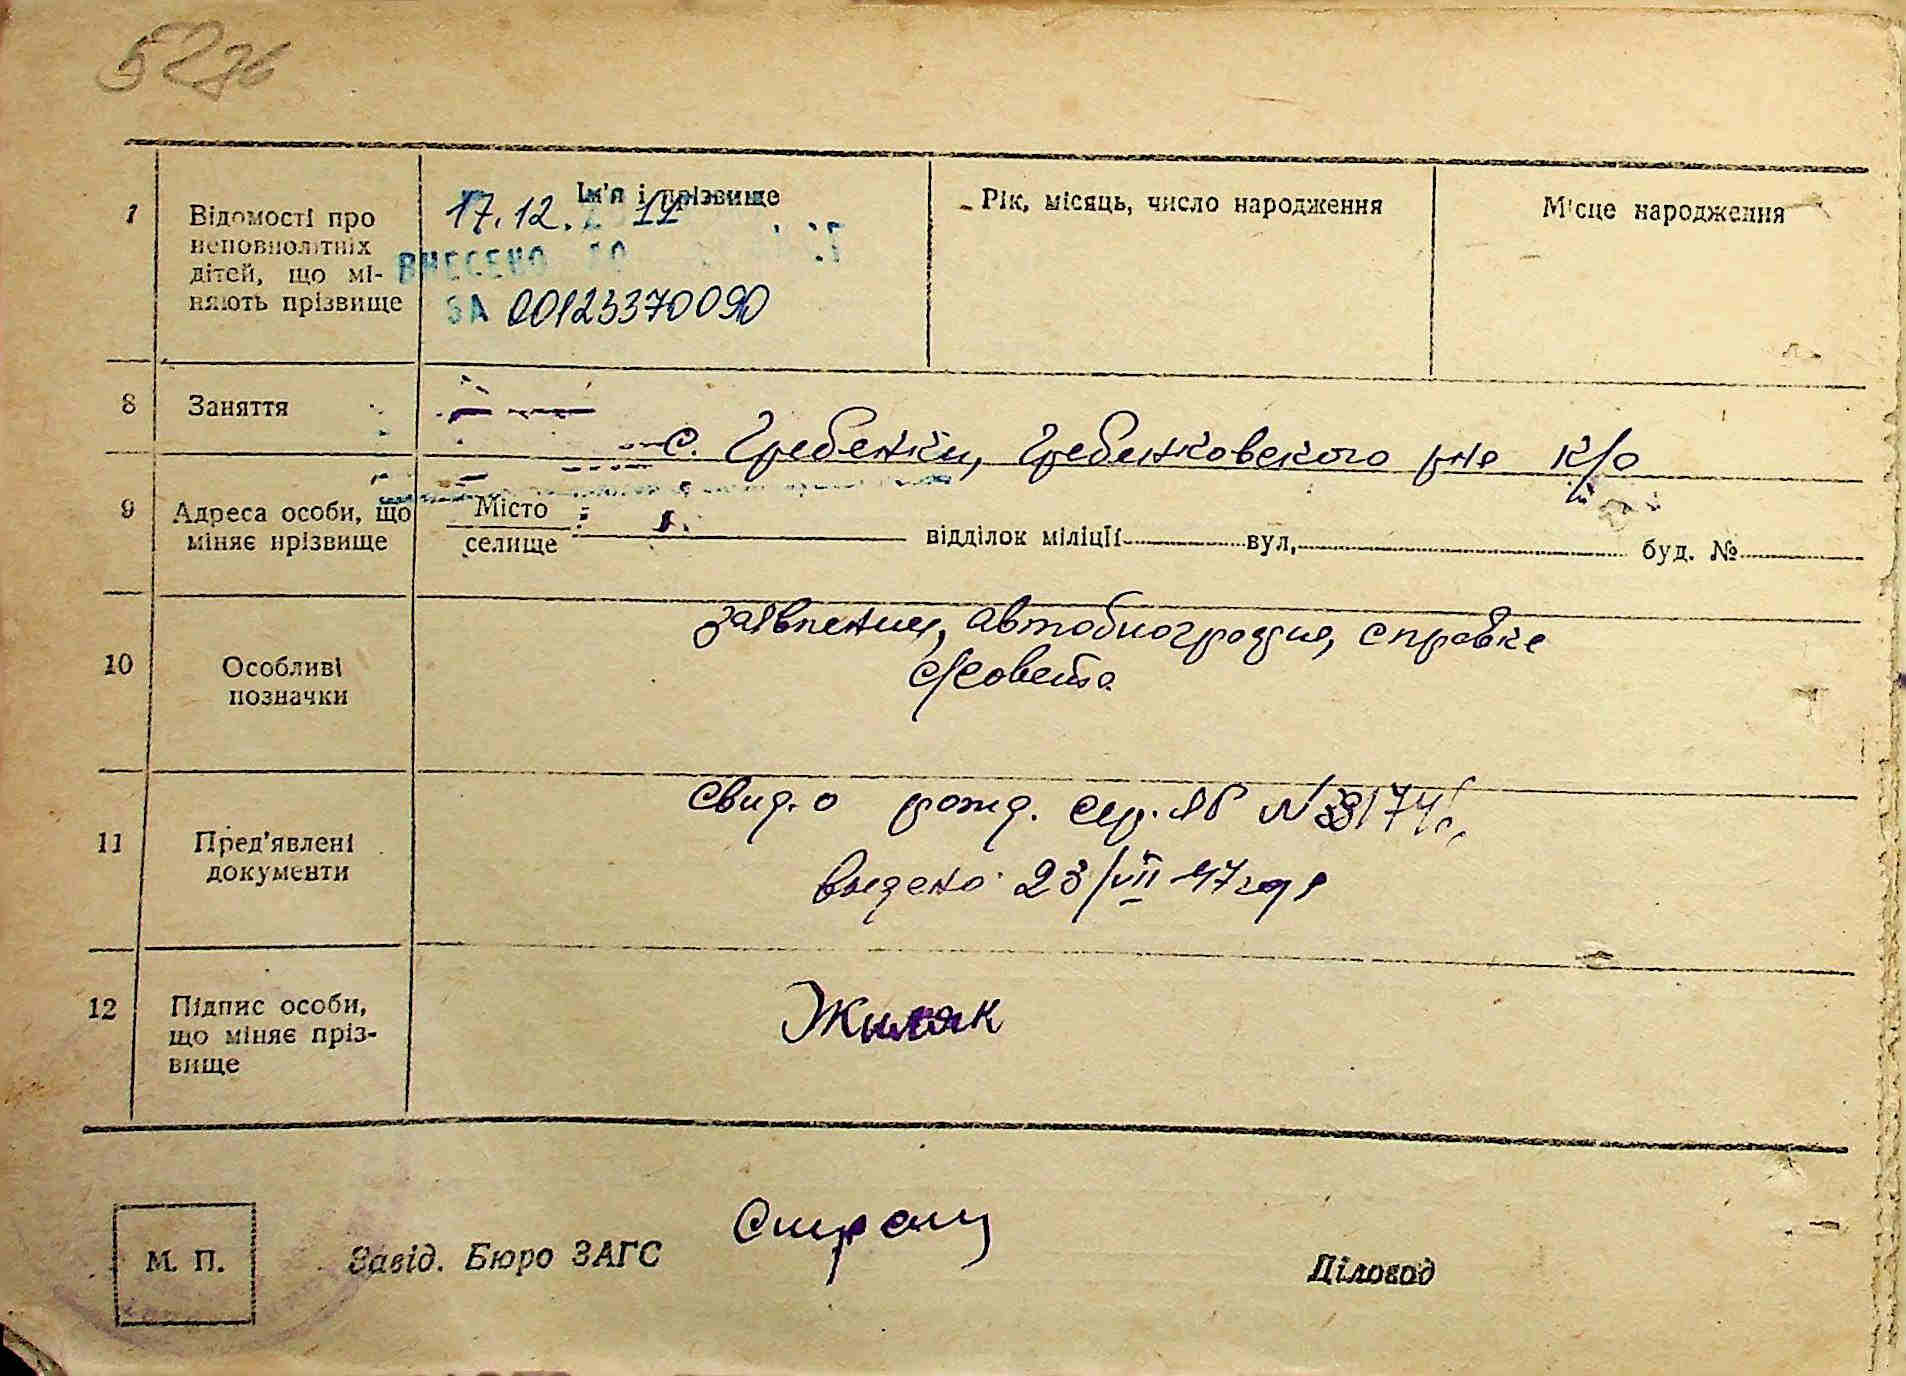 52
1
Відомості про
неповнолітніх
дітей, що мі-
няють прізвище
Ім'я і прізвище
17.12. 11
ВНЕСЕНО ДО
ЗА 00123370090
Рік, місяць, число народження
Місце народження
8
Заняття
с. Гребенки, Гребенковского р-на К/о
9
Адреса особи, що
міняє прізвище
Місто
селище
відділок міліції
вул.
буд. №
10
Особливі
позначки
заявление, автобиография, справка
с/совета
11
Пред'явлені
документи
свид. о рожд. сер. ЯБ №
выдано 23/VII 47 года
12
Підпис особи,
що міняє пріз-
вище
Жиляк
М. П.
Завід. Бюро ЗАГС
Діловод